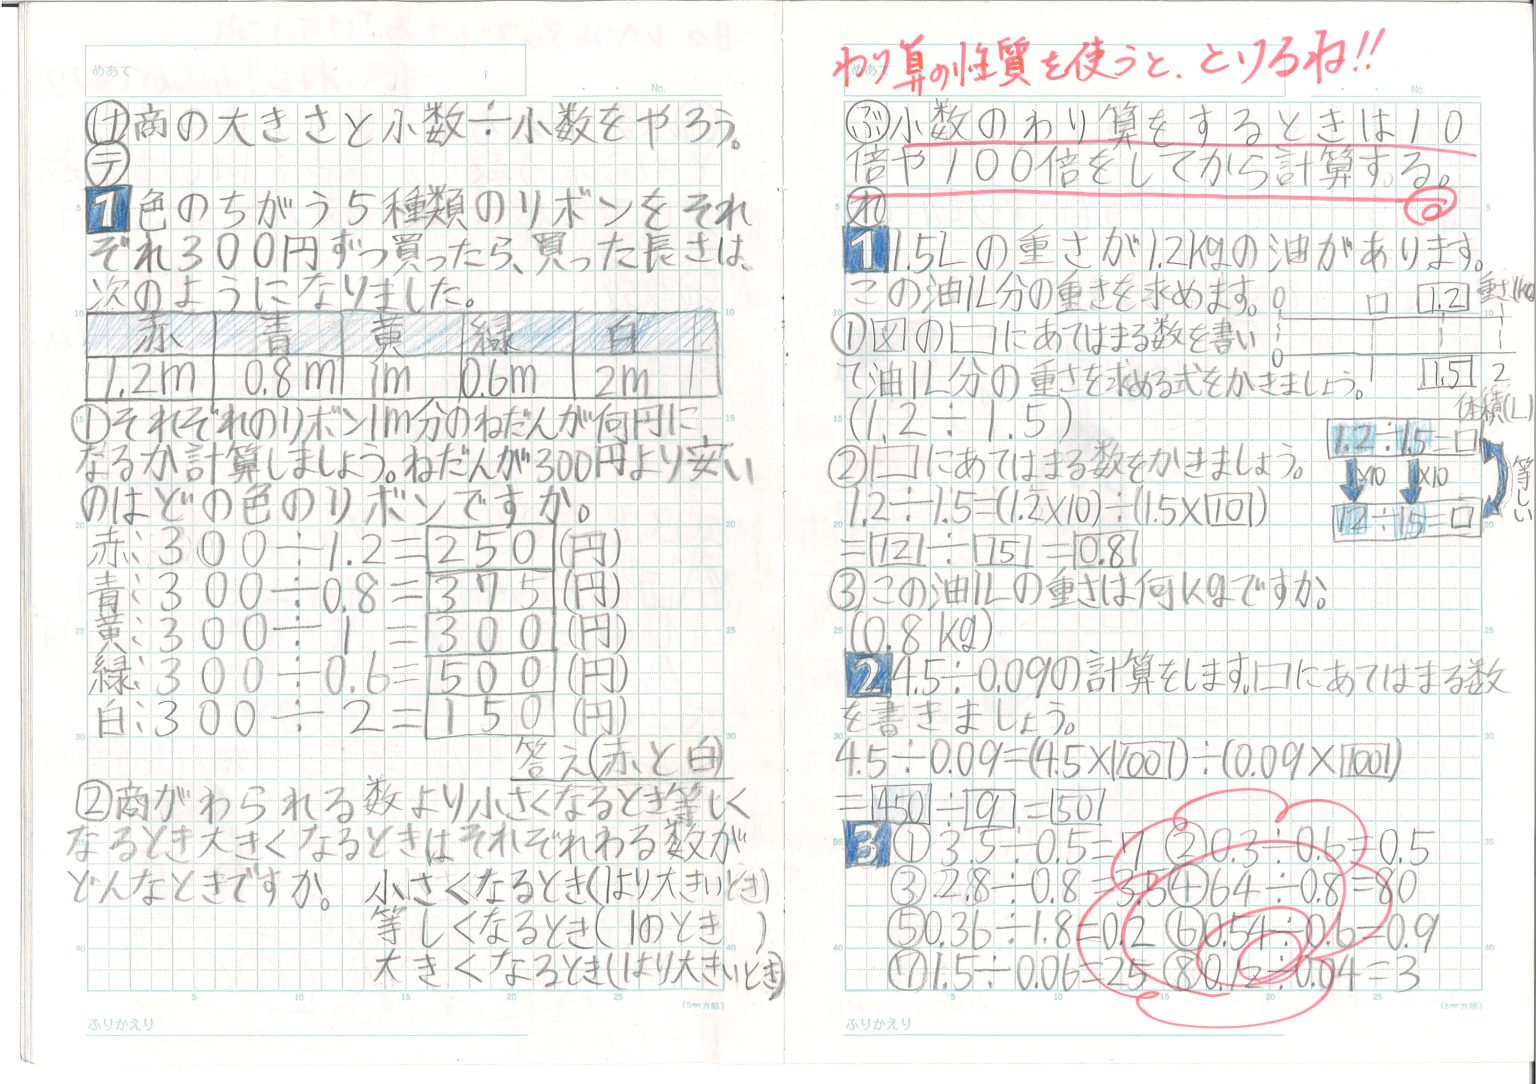 めあて
No.
け 商の大きさと小数÷小数をやろう。
テ
1 色のちがう5種類のリボンをそれ
ぞれ300円ずつ買ったら、買った長さは、
次のようになりました。
赤 青 黄 緑 白
1.2m 0.8m 1m 0.6m 2m
①それぞれのリボン1m分のねだんが何円に
なるか計算しましょう。ねだんが300円より安い
のはどの色のリボンですか。
赤:300÷1.2=250(円)
青:300÷0.8=375(円)
黄:300÷1=300(円)
緑:300÷0.6=500(円)
白:300÷2=150(円)
答え(赤と白)
②商がわられる数より小さくなるとき等しく
なるとき大きくなるときはそれぞれわる数が
どんなときですか。 小さくなるとき(1より大きいとき)
等しくなるとき(1のとき)
大きくなるとき(1より大きいとき)
5 10 15 20 25
(5mm方眼)
ふりかえり
わり算の性質を使うと、とけるね!!
めあて
No.
ぶ 小数のわり算をするときは10
倍や100倍をしてから計算する。
れ
1 1.5Lの重さが1.2kgの油があります。
この油1L分の重さを求めます。
0 □ 1.2 重さ(kg)
①図の□にあてはまる数を書い
て油1L分の重さを求める式をかきましょう。
0 1 1.5 2
体積(L)
(1.2÷1.5)
1.2÷1.5=□
②□にあてはまる数をかきましょう。
×10 ×10 等しい
1.2÷1.5=(1.2×10)÷(1.5×10)
12÷15=□
=12÷15=0.8
③この油1Lの重さは何kgですか。
(0.8kg)
2 4.5÷0.09の計算をします。□にあてはまる数
を書きましょう。
4.5÷0.09=(4.5×100)÷(0.09×100)
=450÷9=50
3 ①3.5÷0.5=7 ②0.3÷0.6=0.5
③2.8÷0.8=3.5 ④64÷0.8=80
⑤0.36÷1.8=0.2 ⑥0.54÷0.6=0.9
⑦1.5÷0.06=25 ⑧0.12÷0.04=3
5 10 15 20 25
(5mm方眼)
ふりかえり